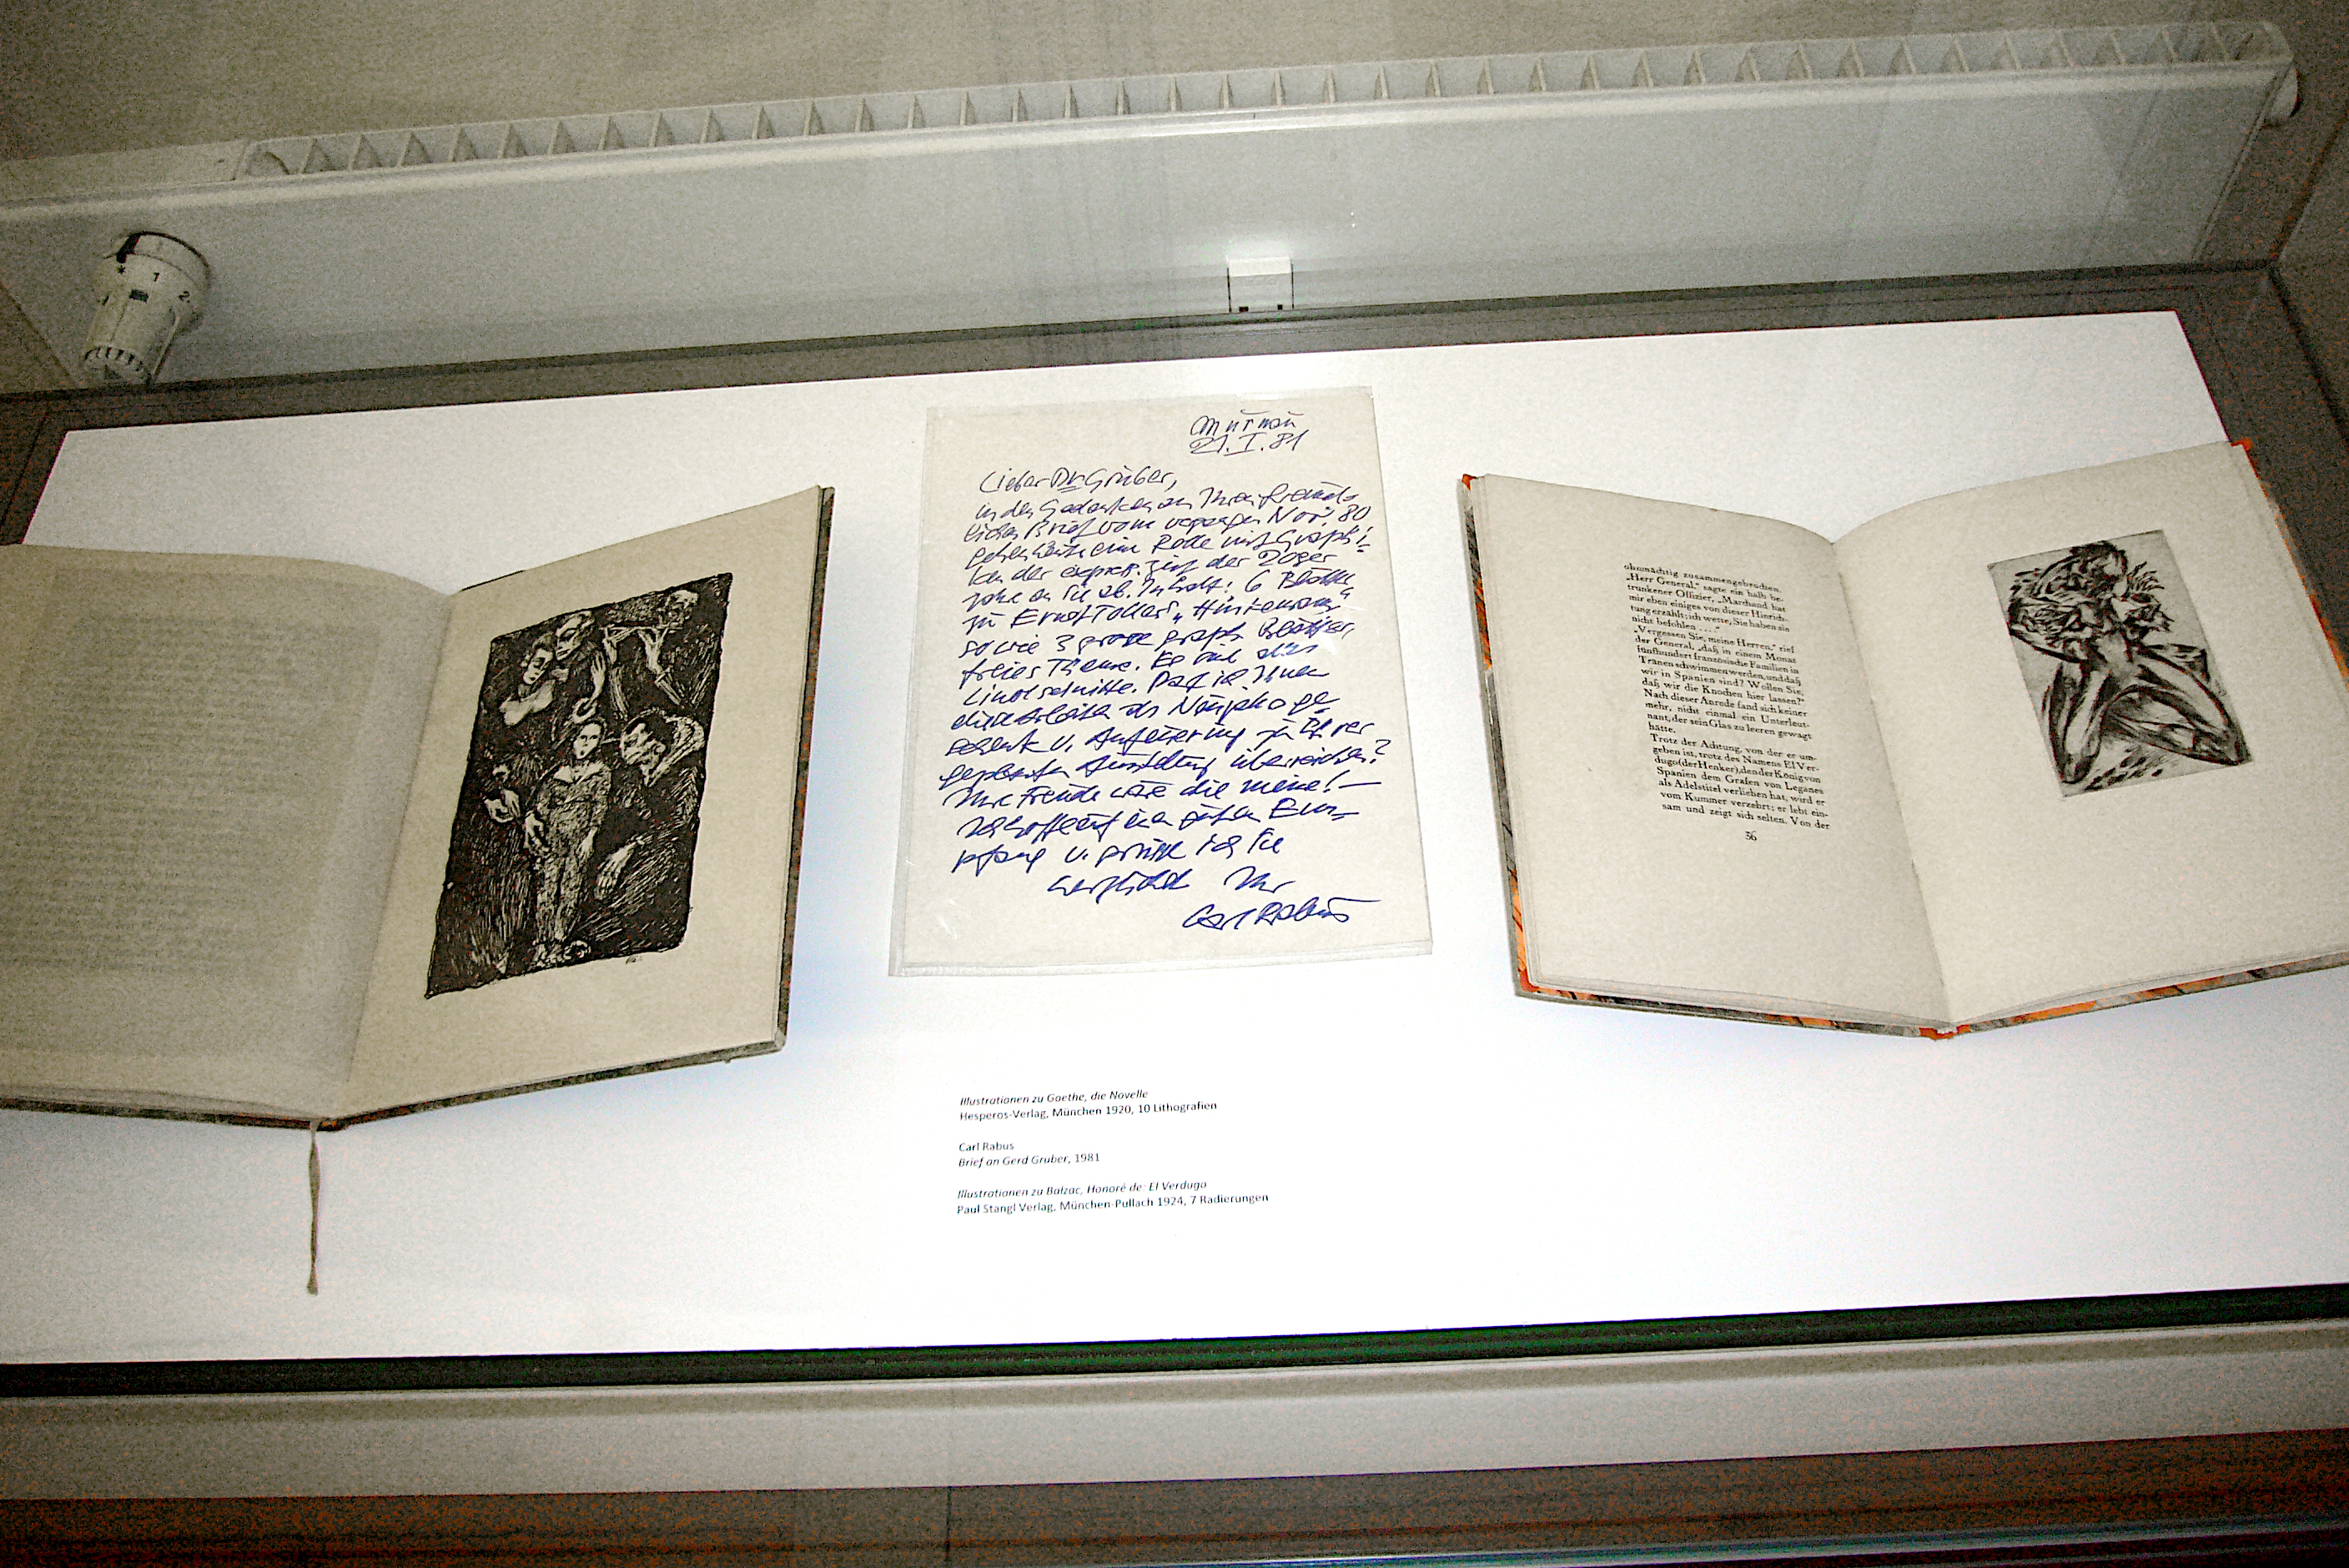 * 1 2
Murnau
21.I.81
Lieber Dr Gruber,
in den Gedanken an Ihren freund-
lichen Brief vom Nov. 80
gehen heute eine Rolle mit Graphi-
ken der express. Zeit der 20ger
Jahre an Sie ab. Inhalt: 6 Blätter
zu Ernst Tollers „Hinkemann“
sowie 3 große graph. Blätter,
freies Thema. Es sind alles
Linolschnitte. Darf ich Ihnen
diese Arbeiten als Neujahrsge-
schenk u. zu Ihrer
geplanten Ausstellung überreichen?
Ihre Freude wäre die meine! —
Ich hoffe auf guten Em-
pfang u. grüße ich Sie
herzlichst Ihr
Carl Rabus
ohnmächtig zusammengebrochen.
„Herr General,“ sagte ein halb be-
trunkener Offizier, „Marchand hat
mir eben einiges von dieser Hinrich-
tung erzählt; ich wette, Sie haben sie
nicht befohlen ....“
„Vergessen Sie, meine Herren,“ rief
der General, „daß in einem Monat
fünfhundert französische Familien in
Tränen schwimmen werden, und daß
wir in Spanien sind? Wollen Sie,
daß wir die Knochen hier lassen?“
Nach dieser Anrede fand sich keiner
mehr, nicht einmal ein Unterleut-
nant, der sein Glas zu leeren gewagt
hätte.
Trotz der Achtung, von der er um-
geben ist, trotz des Namens El Ver-
dugo (der Henker), den der König von
Spanien dem Grafen von Leganes
als Adelstitel verliehen hat, wird er
vom Kummer verzehrt; er lebt ein-
sam und zeigt sich selten. Von der
36
Illustrationen zu Goethe, die Novelle
Hesperos-Verlag, München 1920, 10 Lithografien
Carl Rabus
Brief an Gerd Gruber, 1981
Illustrationen zu Balzac, Honoré de: El Verdugo
Paul Stangl Verlag, München-Pullach 1924, 7 Radierungen